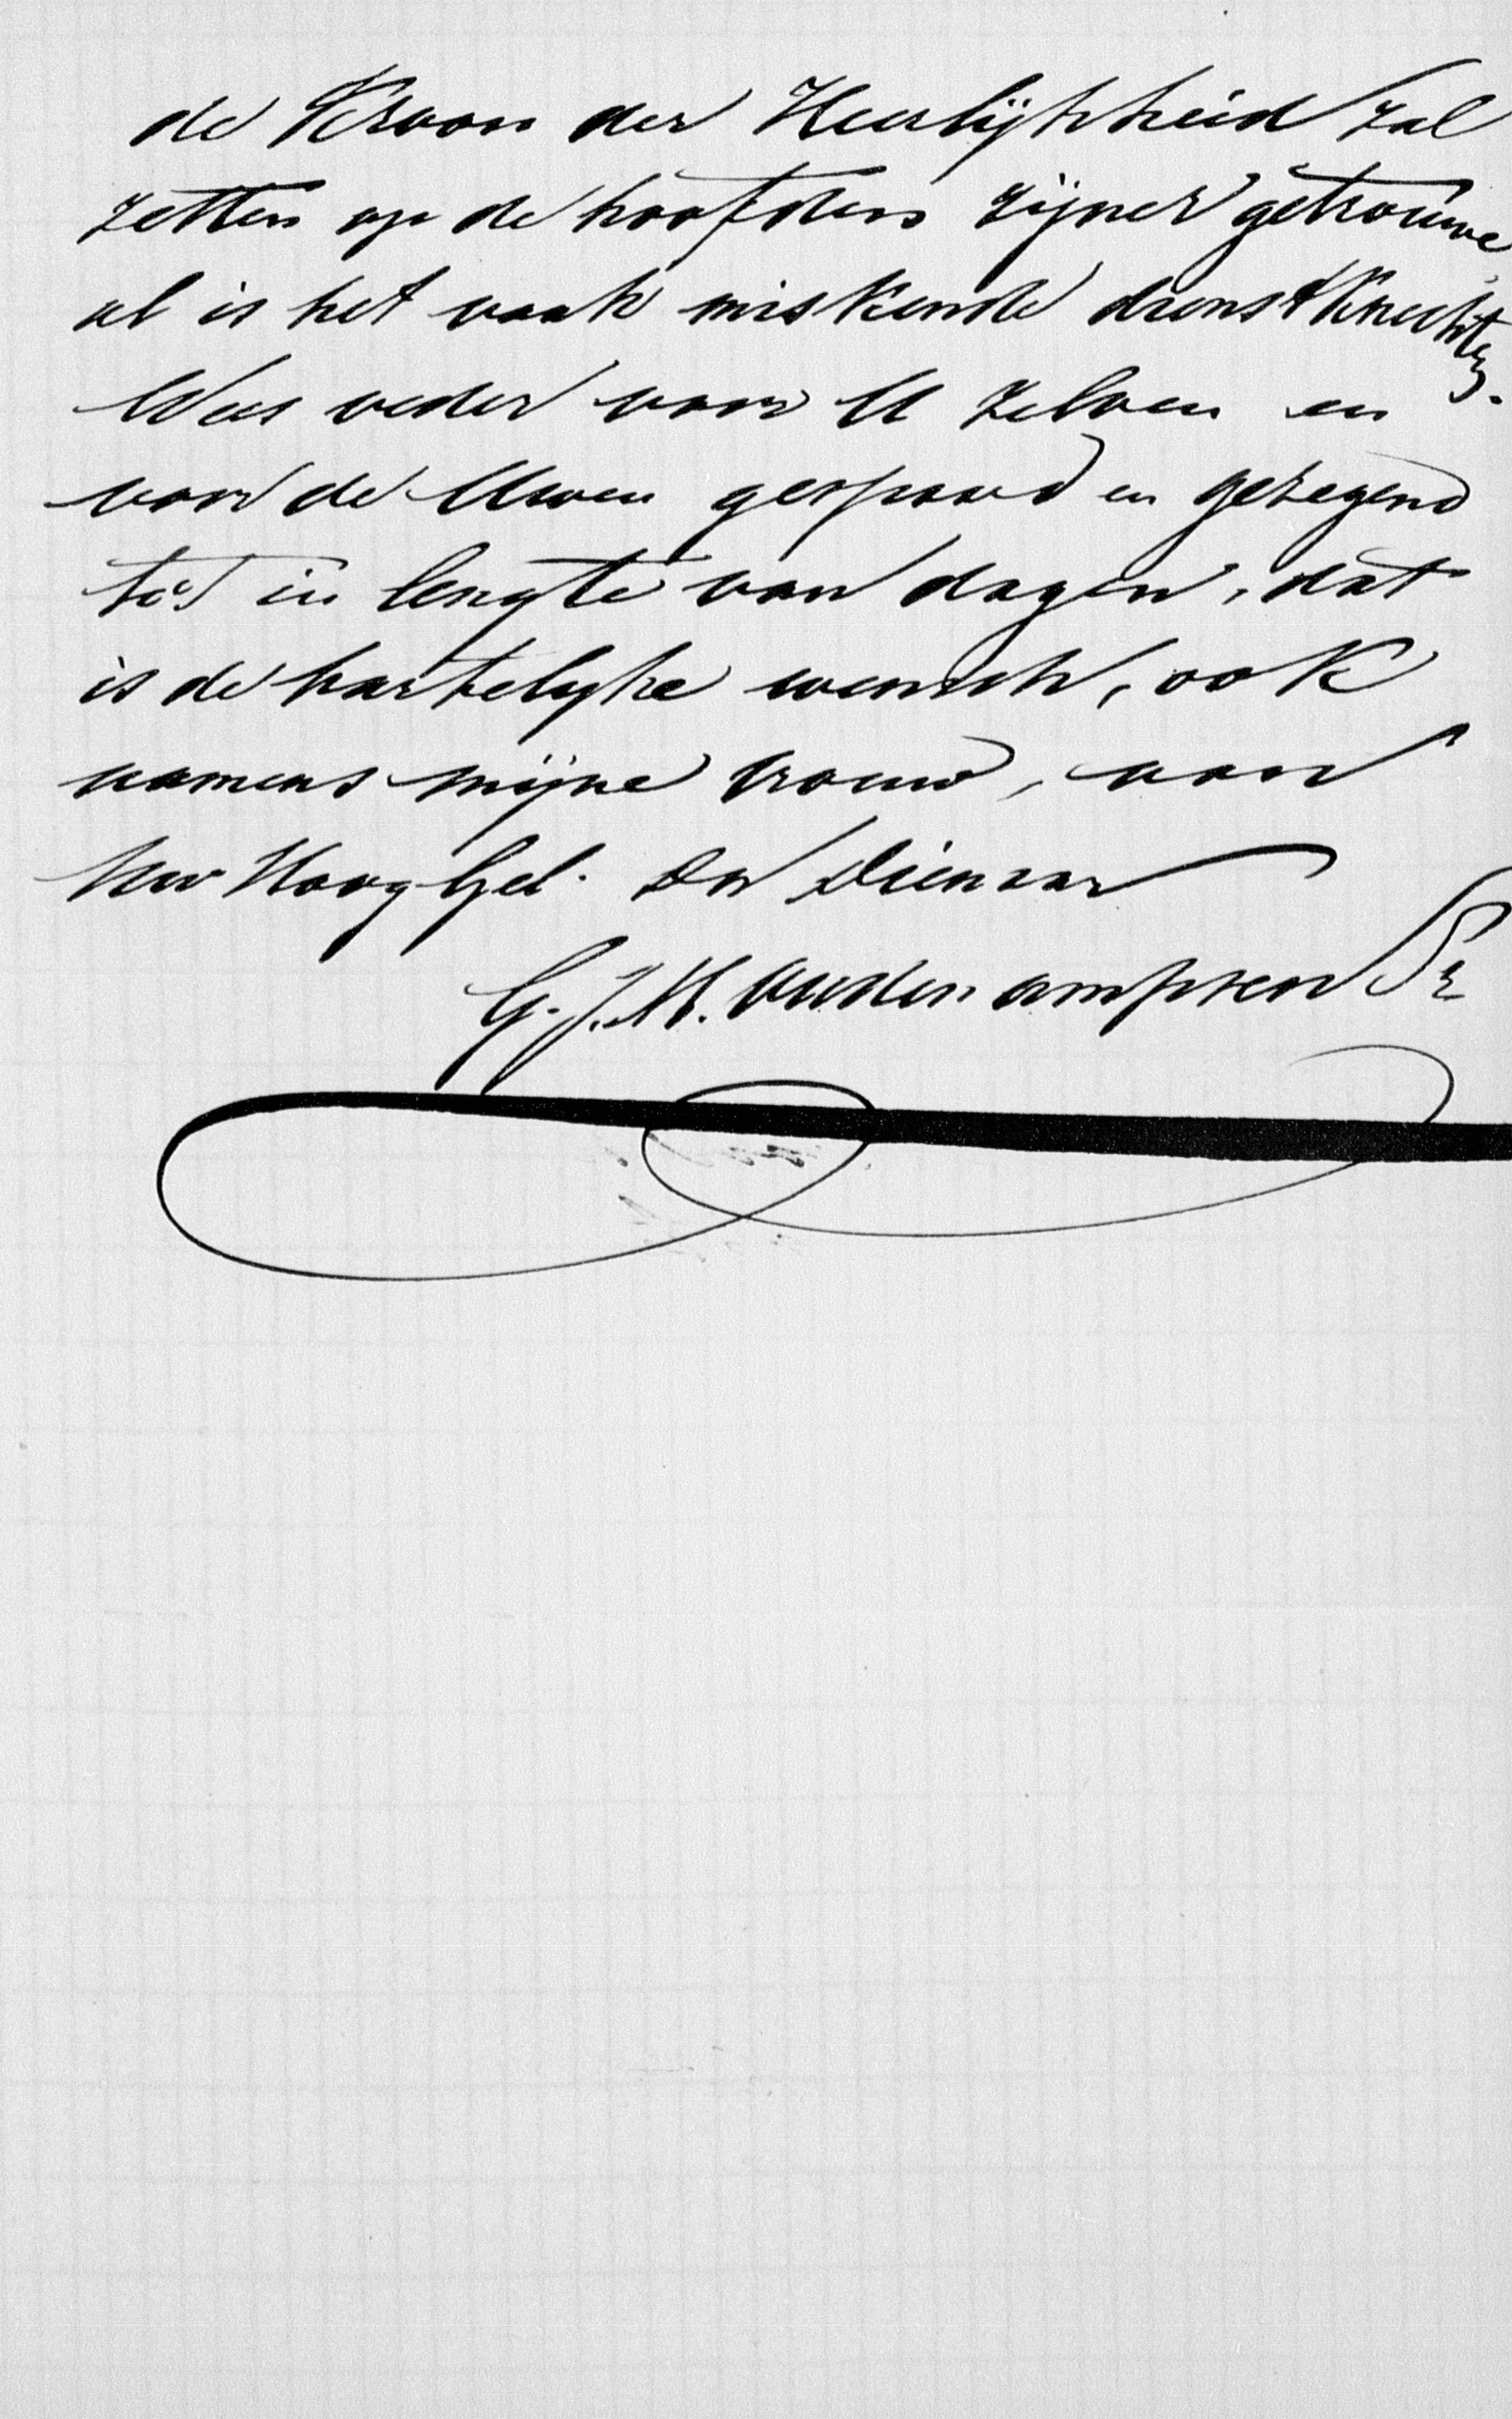 de Kroon der Heerlijkheid zal
zetten op de hoofden zijner getrouwe
al is het vaak miskende dienstknechten.
Wees verder voor U zelven en
voor de Uwen gespaard en gezegend
tot in lengte van dagen, dat
is de hartelijke wensch, ook
namens mijne vrouw, van
Uw HoogGel. Dw Dienaar
G. J. H.